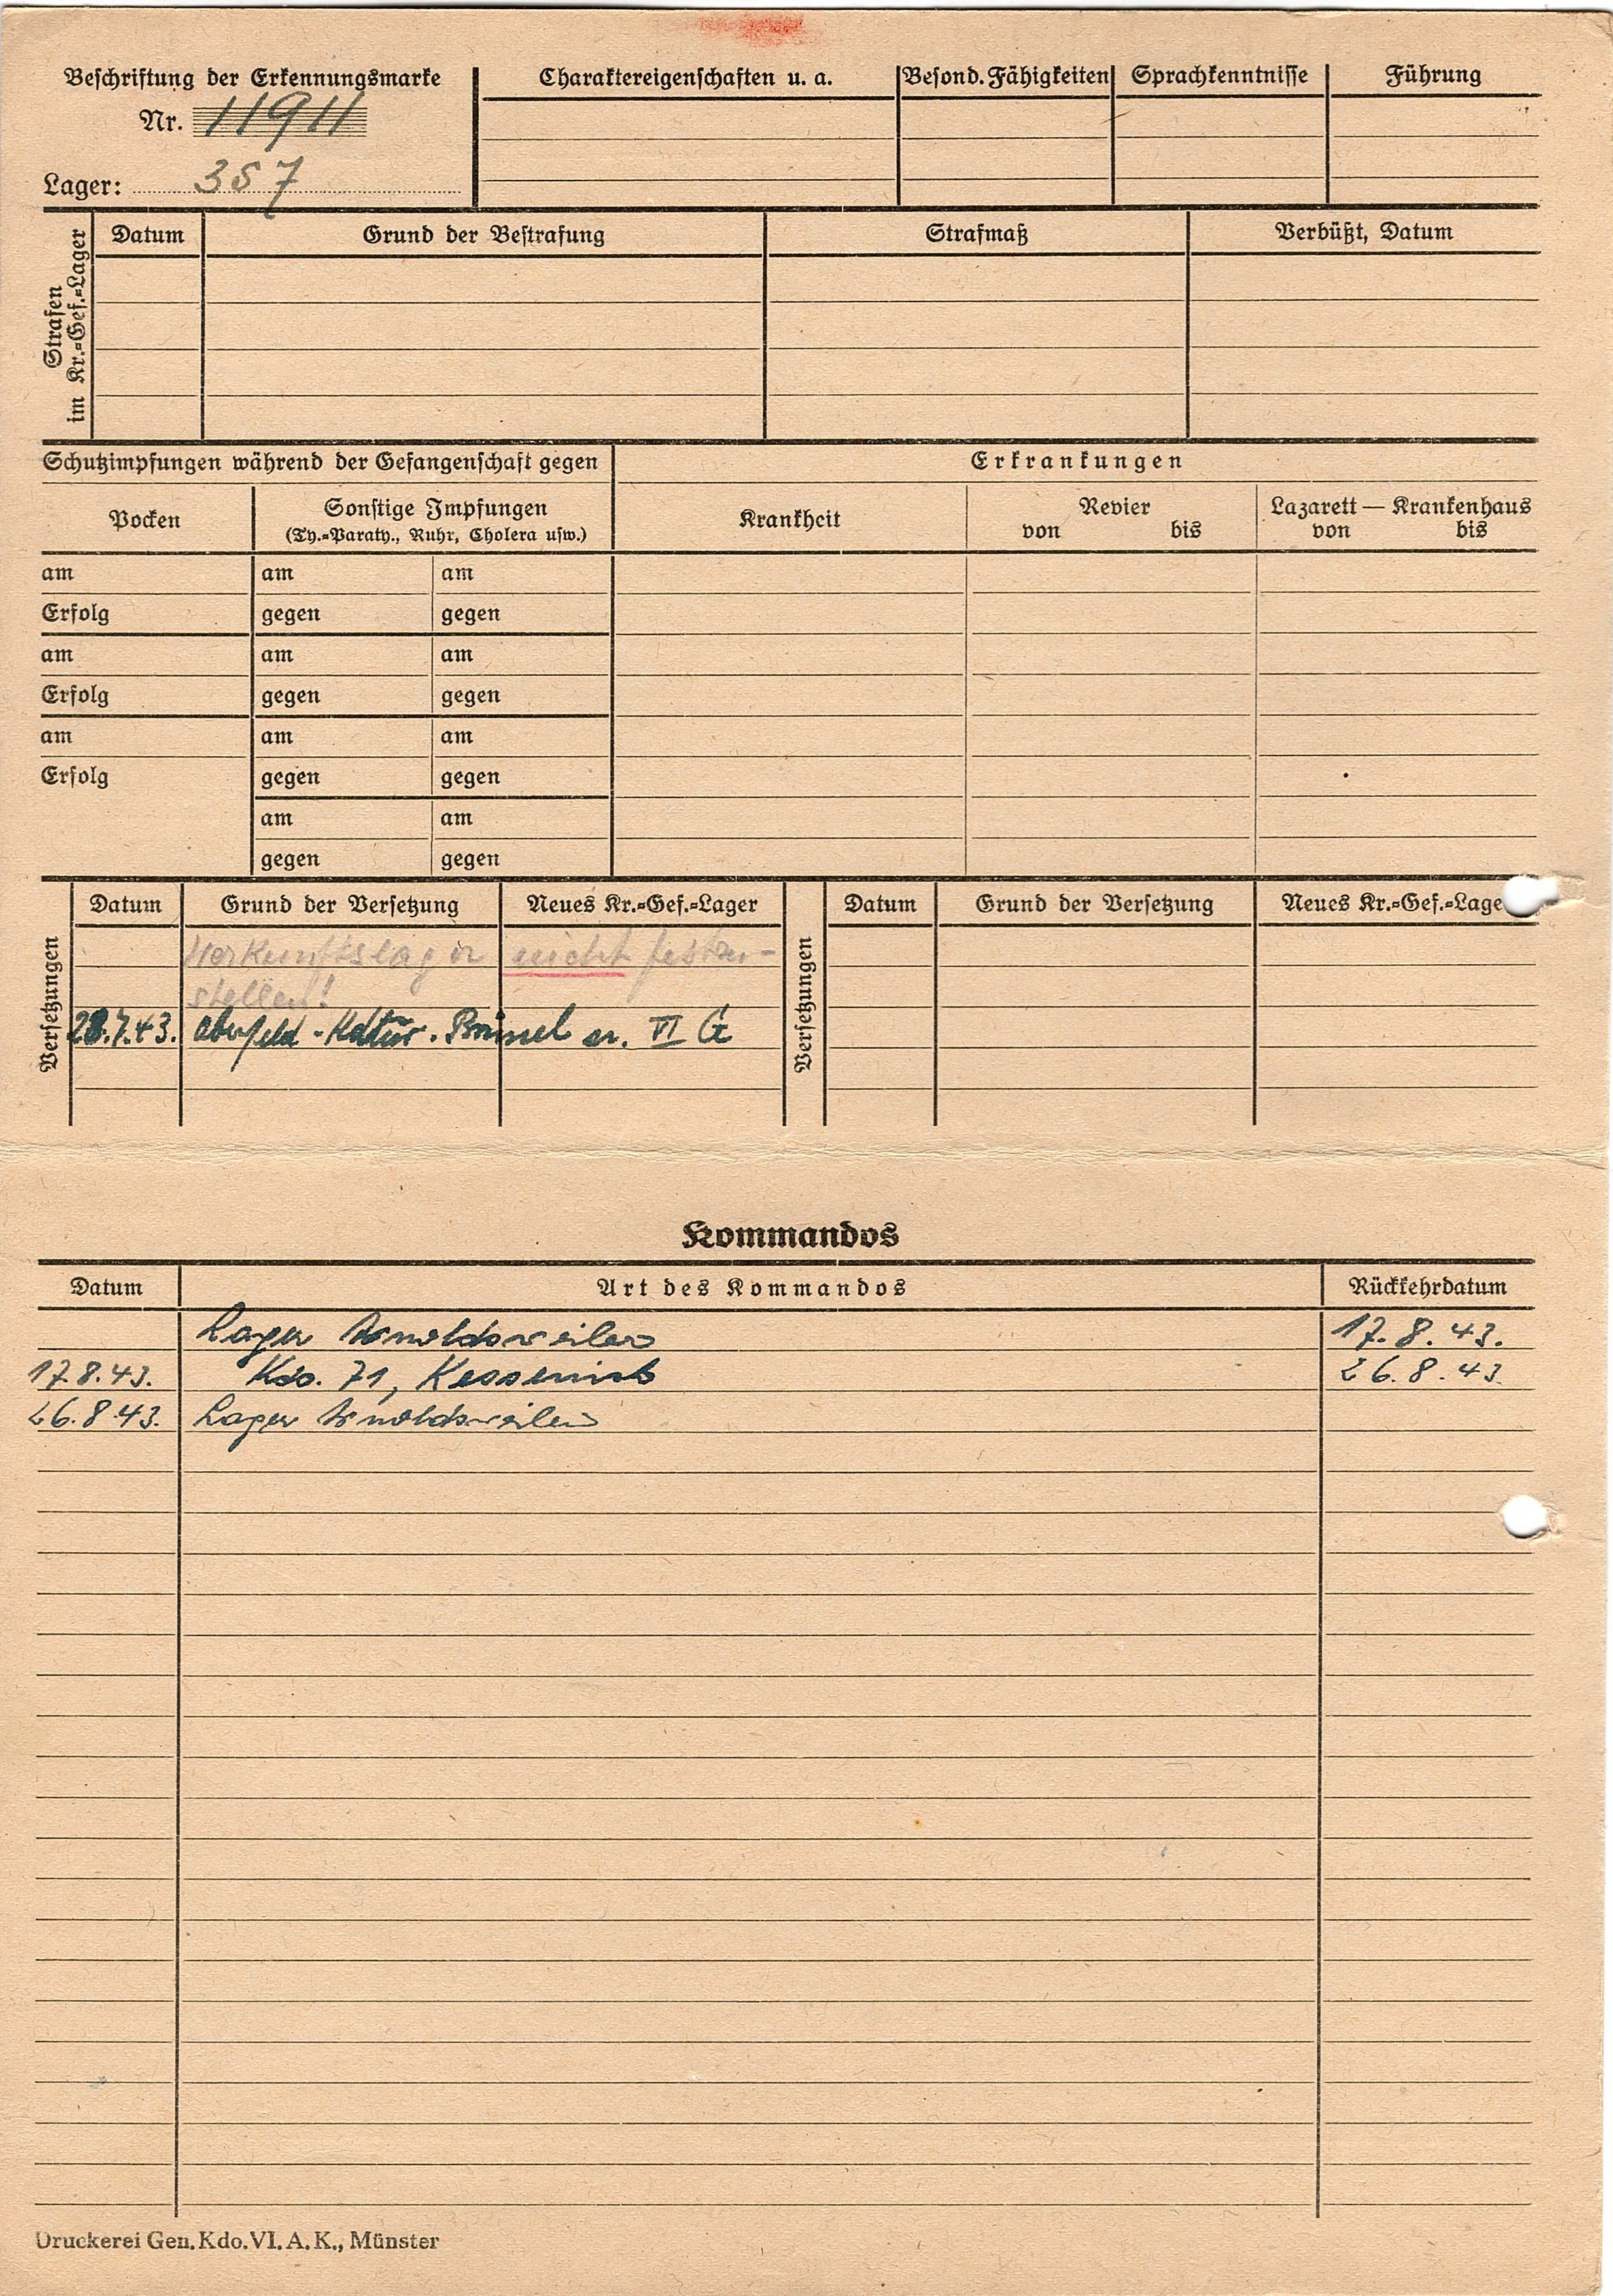 Beschriftung der Erkennungsmarke
Nr. 11911
Lager: 357
Charaktereigenschaften u. a.
Besond. Fähigkeiten
Sprachkenntnisse
Führung
Strafen
im Kr.=Gef.=Lager
Datum
Grund der Bestrafung
Strafmaß
Verbüßt, Datum
Schutzimpfungen während der Gefangenschaft gegen
Erkrankungen
Pocken
Sonstige Impfungen
(Ty.=Paraty., Ruhr, Cholera usw.)
Krankheit
Revier
von bis
Lazarett — Krankenhaus
von bis
am am am
Erfolg gegen gegen
am am am
Erfolg gegen gegen
am am am
Erfolg gegen gegen
am am
gegen gegen
Versetzungen
Datum Grund der Versetzung Neues Kr.=Gef.=Lager
Herkunftslager nicht festzu-
stellen!
28.7.43. Brüssel VI G
Versetzungen
Datum Grund der Versetzung Neues Kr.=Gef.=Lage
Kommandos
Datum Art des Kommandos Rückkehrdatum
Lager Arnoldsweiler 17.8.43.
17.8.43. Kdo. 71, Kessenich 26.8.43
26.8.43. Lager Arnoldsweiler
Druckerei Gen. Kdo. VI. A. K., Münster